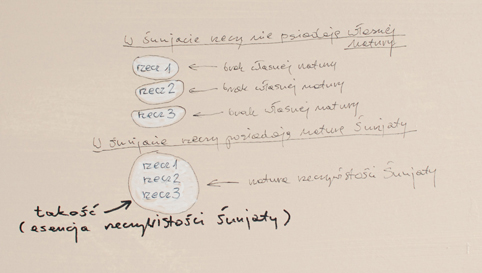 W śunjacie rzeczy nie posiadają własnej
natury
rzecz 1 ← brak własnej natury
rzecz 2 ← brak własnej natury
rzecz 3 ← brak własnej natury
W śunjacie rzeczy posiadają naturę Śunjaty
rzecz 1
rzecz 2 ← natura rzeczywistości Śunjaty
rzecz 3
takość
(esencja rzeczywistości Śunjaty)